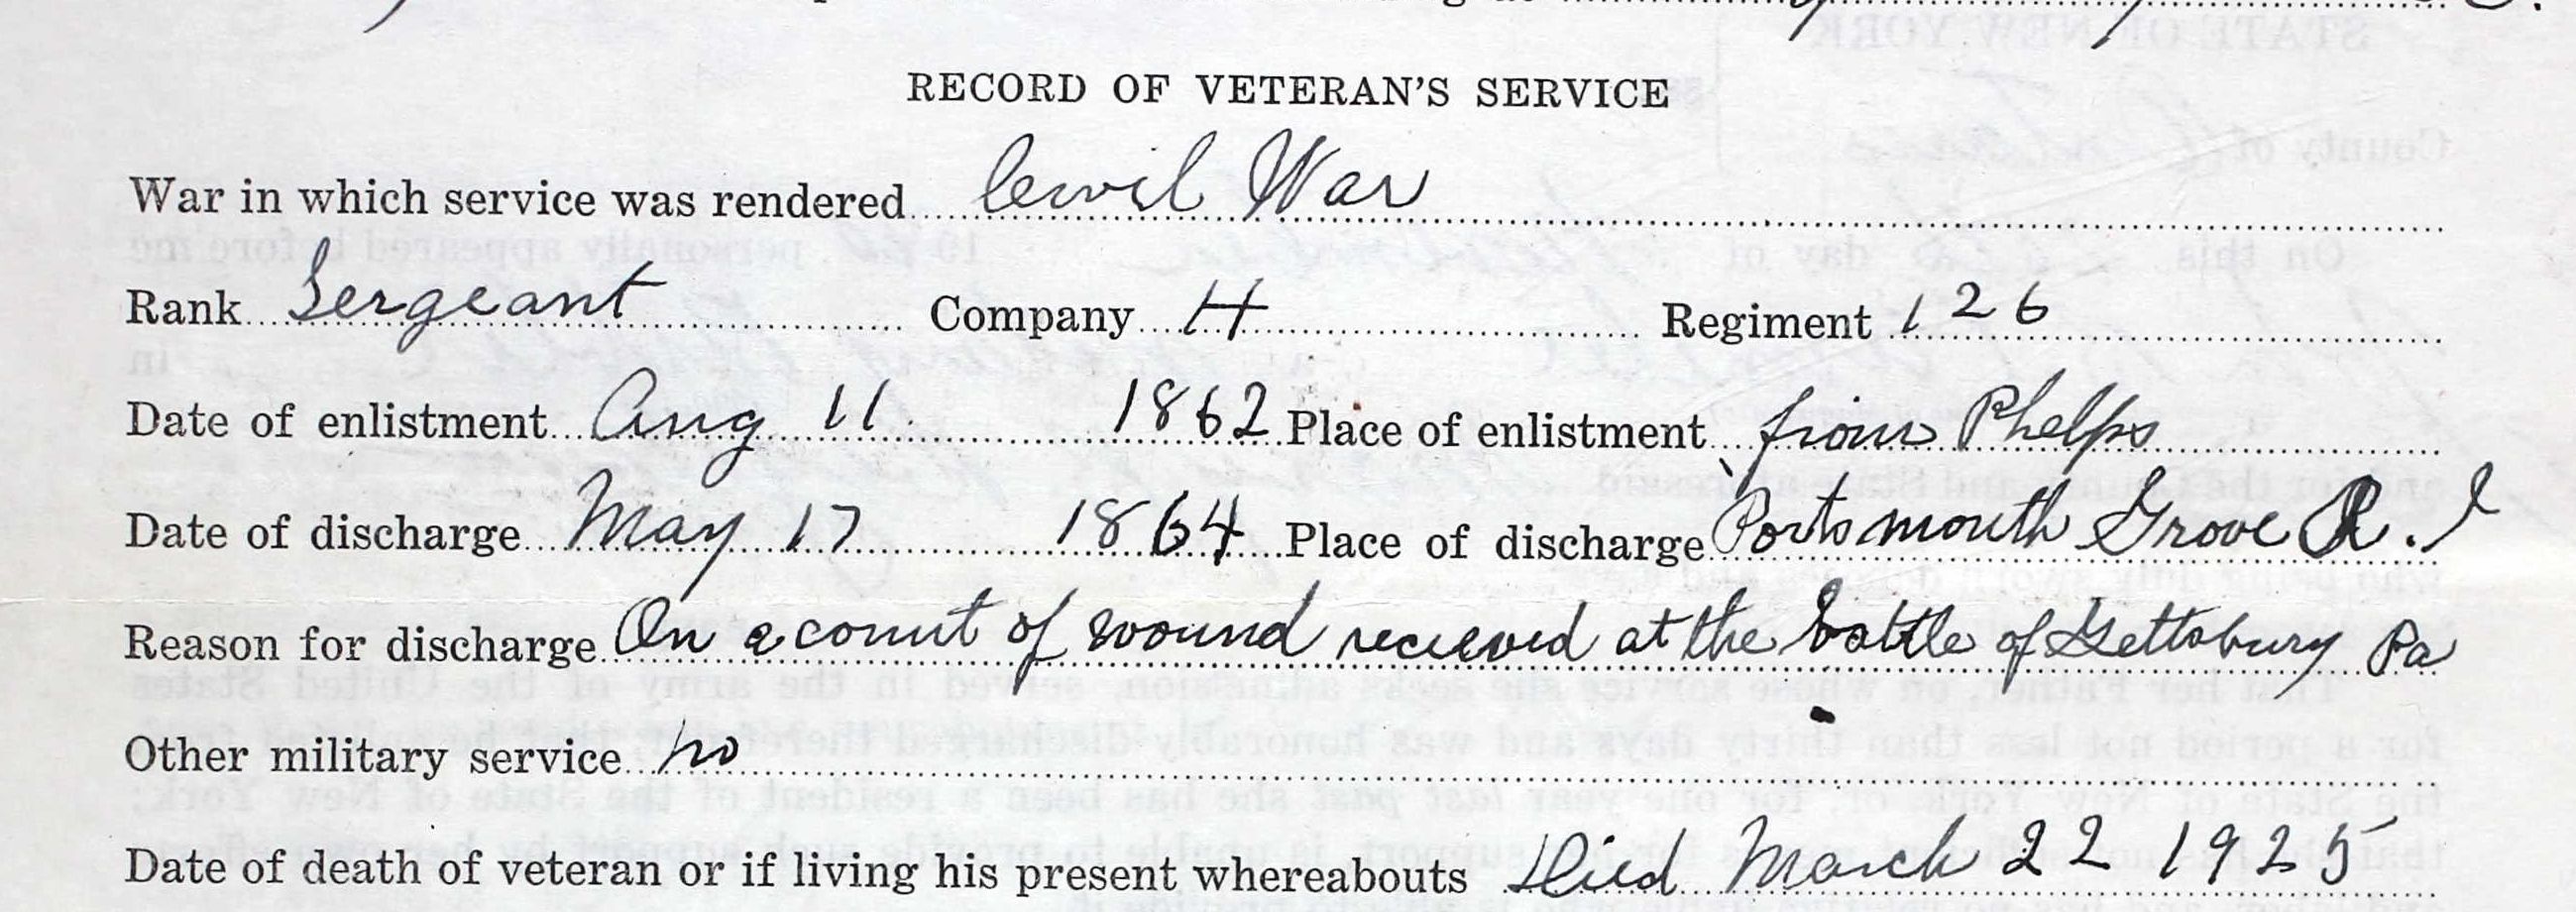 RECORD OF VETERAN'S SERVICE
War in which service was rendered Civil War
Rank Sergeant Company H Regiment 126
Date of enlistment Aug 11 1862 Place of enlistment from Phelps
Date of discharge May 17 1864 Place of discharge Portsmouth Grove R.I
Reason for discharge On acount of wound recieved at the battle of Gettsbury Pa
Other military service no
Date of death of veteran or if living his present whereabouts Died March 22 1925